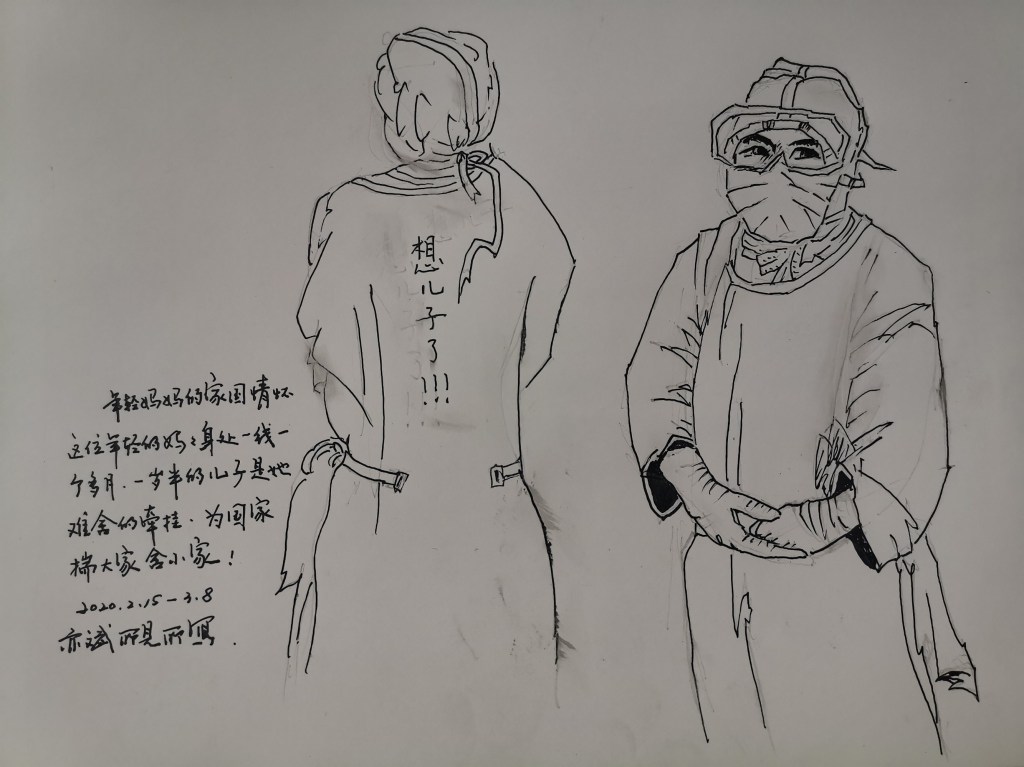 年轻妈妈的家国情怀
这位年轻的妈々身处一线一
个多月.一岁半的儿子是她
难舍的牵挂.为国家
揣大家舍小家！
2020.2.15-3.8
亦斌所见所写.
想儿子了!!!